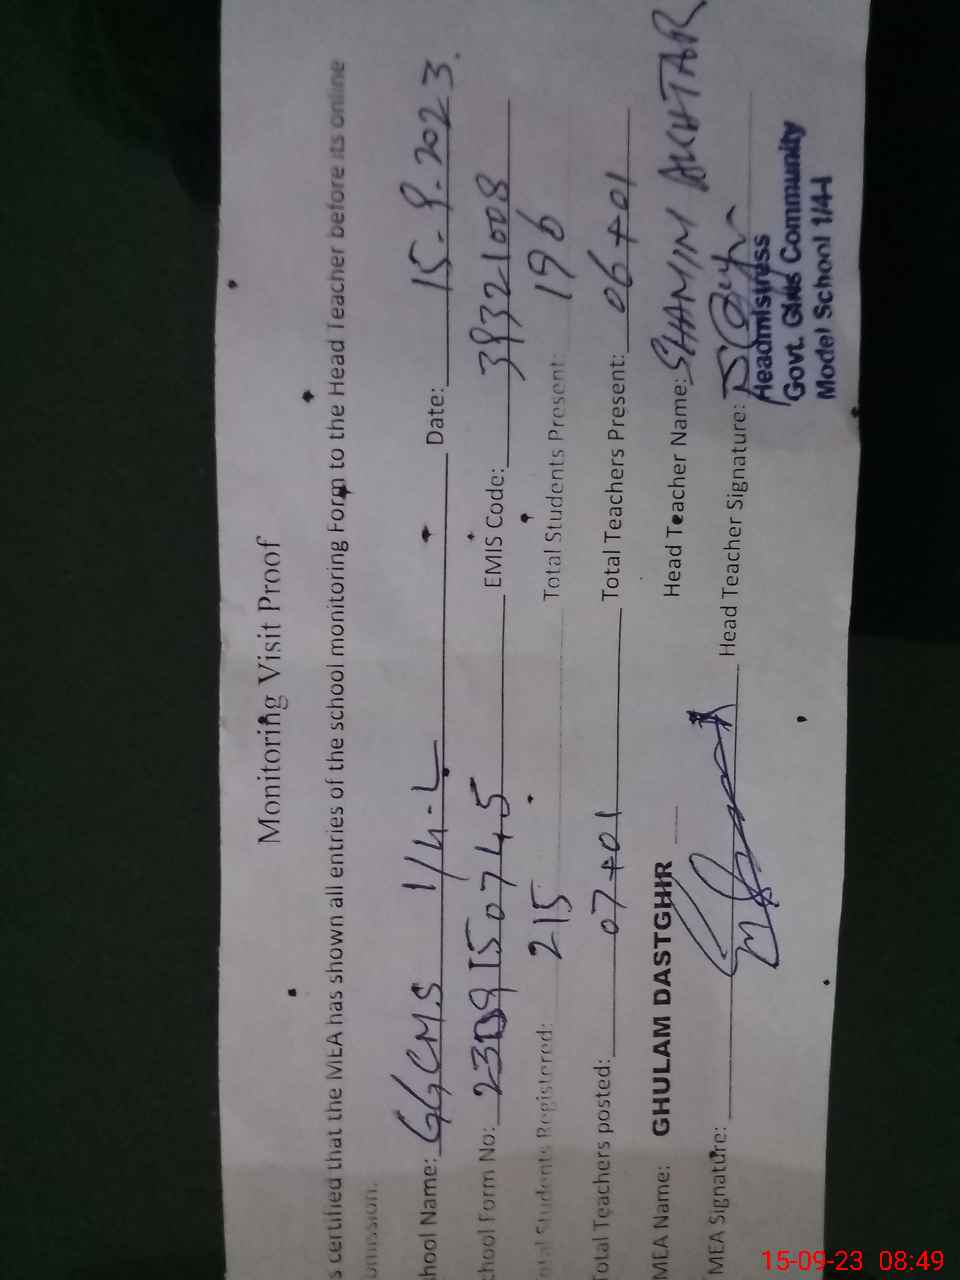 Monitoring Visit Proof
s certified that the MEA has shown all entries of the school monitoring Form to the Head Teacher before its online
omission.
hool Name: GGCMS 1/4-L Date: 15-9-2023.
chool Form No: 15074 5 EMIS Code: 39321008
otal Students Registered: 215 Total Students Present: 196
Total Teachers posted: 07+01 Total Teachers Present: 06+01
MEA Name: GHULAM DASTGHIR Head Teacher Name: SHAMIM AKHTAR
MEA Signature: Head Teacher Signature:
Headmistress
Govt. Girls Community
Model School 1/4-l
15-09-23 08:49